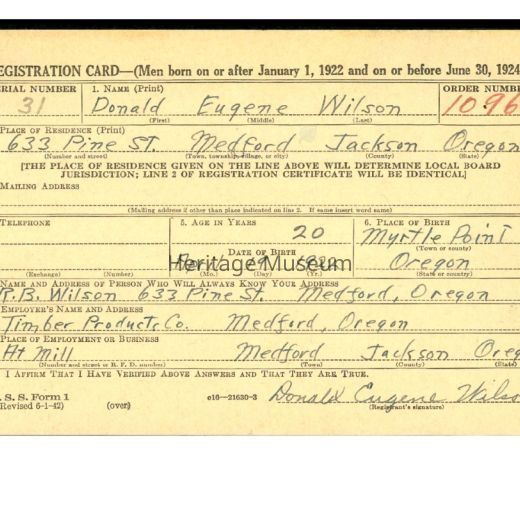 EGISTRATION CARD—(Men born on or after January 1, 1922 and on or before June 30, 1924
ERIAL NUMBER 1. NAME (Print) ORDER NUMBE
31 Donald Eugene Wilson 1096
(First) (Middle) (Last)
PLACE OF RESIDENCE (Print)
633 Pine ST. Medford Jackson Oregon
(Number and street) (Town, township, village, or city) (County) (State)
[THE PLACE OF RESIDENCE GIVEN ON THE LINE ABOVE WILL DETERMINE LOCAL BOARD
JURISDICTION; LINE 2 OF REGISTRATION CERTIFICATE WILL BE IDENTICAL]
MAILING ADDRESS
(Mailing address if other than place indicated on line 2. If same insert word same)
TELEPHONE 5. AGE IN YEARS 6. PLACE OF BIRTH
20 Myrtle Point
(Town or county)
DATE OF BIRTH
1922 Oregon
Heritage Museum
(Exchange) (Number) (Mo.) (Day) (Yr.) (State or country)
NAME AND ADDRESS OF PERSON WHO WILL ALWAYS KNOW YOUR ADDRESS
R.B. Wilson 633 Pine St. Medford, Oregon
EMPLOYER'S NAME AND ADDRESS
Timber Products Co. Medford, Oregon
PLACE OF EMPLOYMENT OR BUSINESS
At Mill Medford Jackson Oreg
(Number and street or R. F. D. number) (Town) (County) (State)
I AFFIRM THAT I HAVE VERIFIED ABOVE ANSWERS AND THAT THEY ARE TRUE.
. S. S. Form 1 e16—21630-3 Donald Eugene Wilso
Revised 6-1-42) (over) (Registrant's signature)